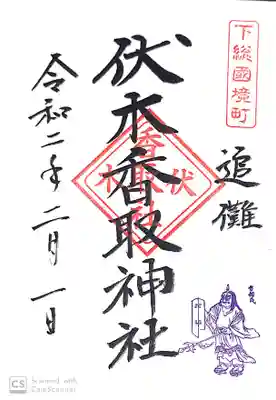 下総國境町
追儺
伏木香取神社
令和二年二月一日
CS Scanned with CamScanner